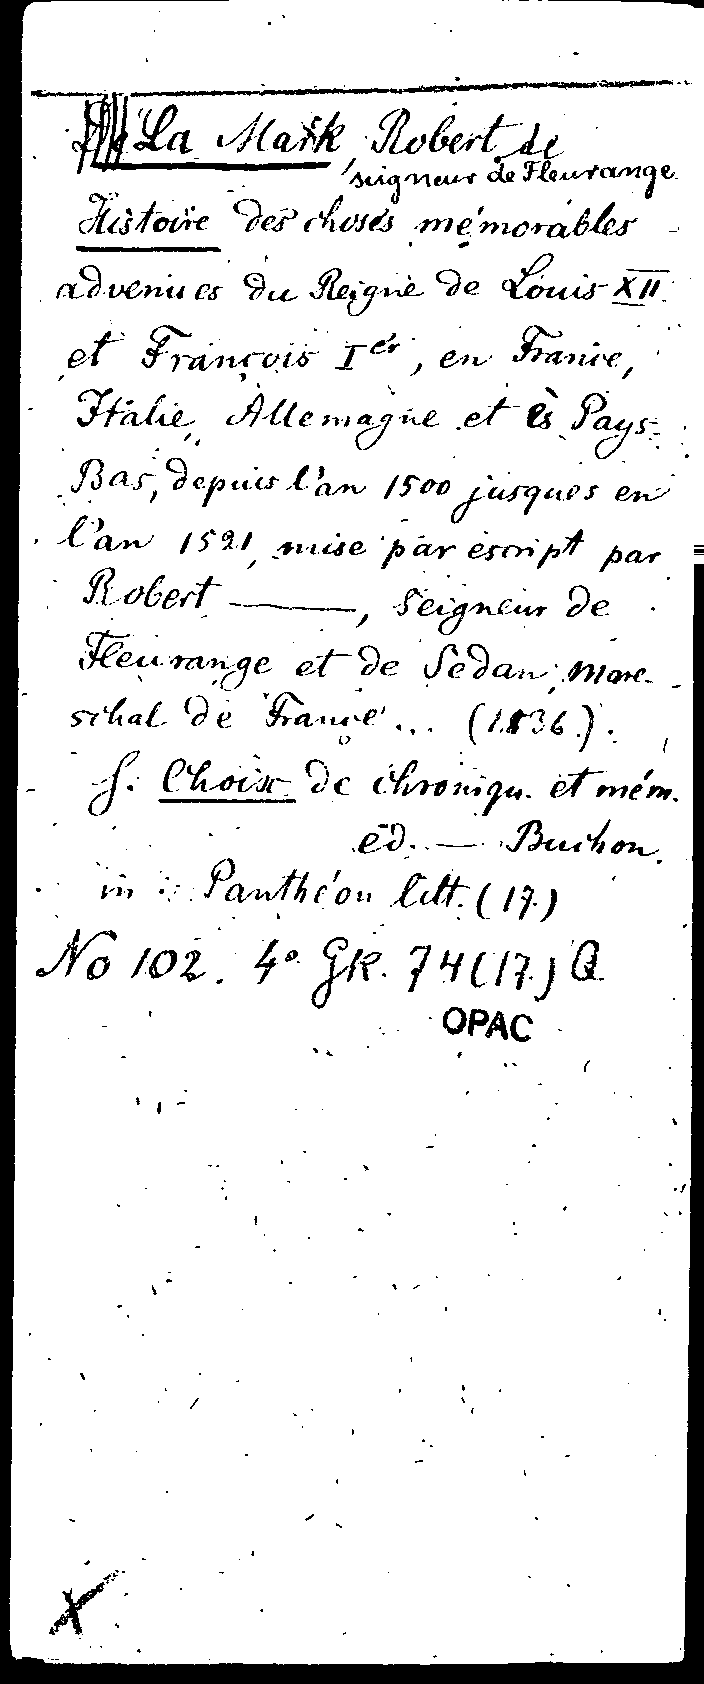 La Mark, Robert de
seigneur de Fleurange
Histoire des choses mémorables
advenues du Reigne de Louis XII
et François Ier, en France,
Italie, Allemagne et ès Pays-
Bas, depuis l'an 1500 jusques en
l'an 1521, mise par escript par
Robert ———, seigneur de
Fleurange et de Sedan, mare-
schal de France ... (1836).
s. Choix de chroniqu. et mém.
éd. — Buchon.
in : Panthéon litt. (17.)
No 102. 4° Gk. 74(17.) Q
OPAC
X